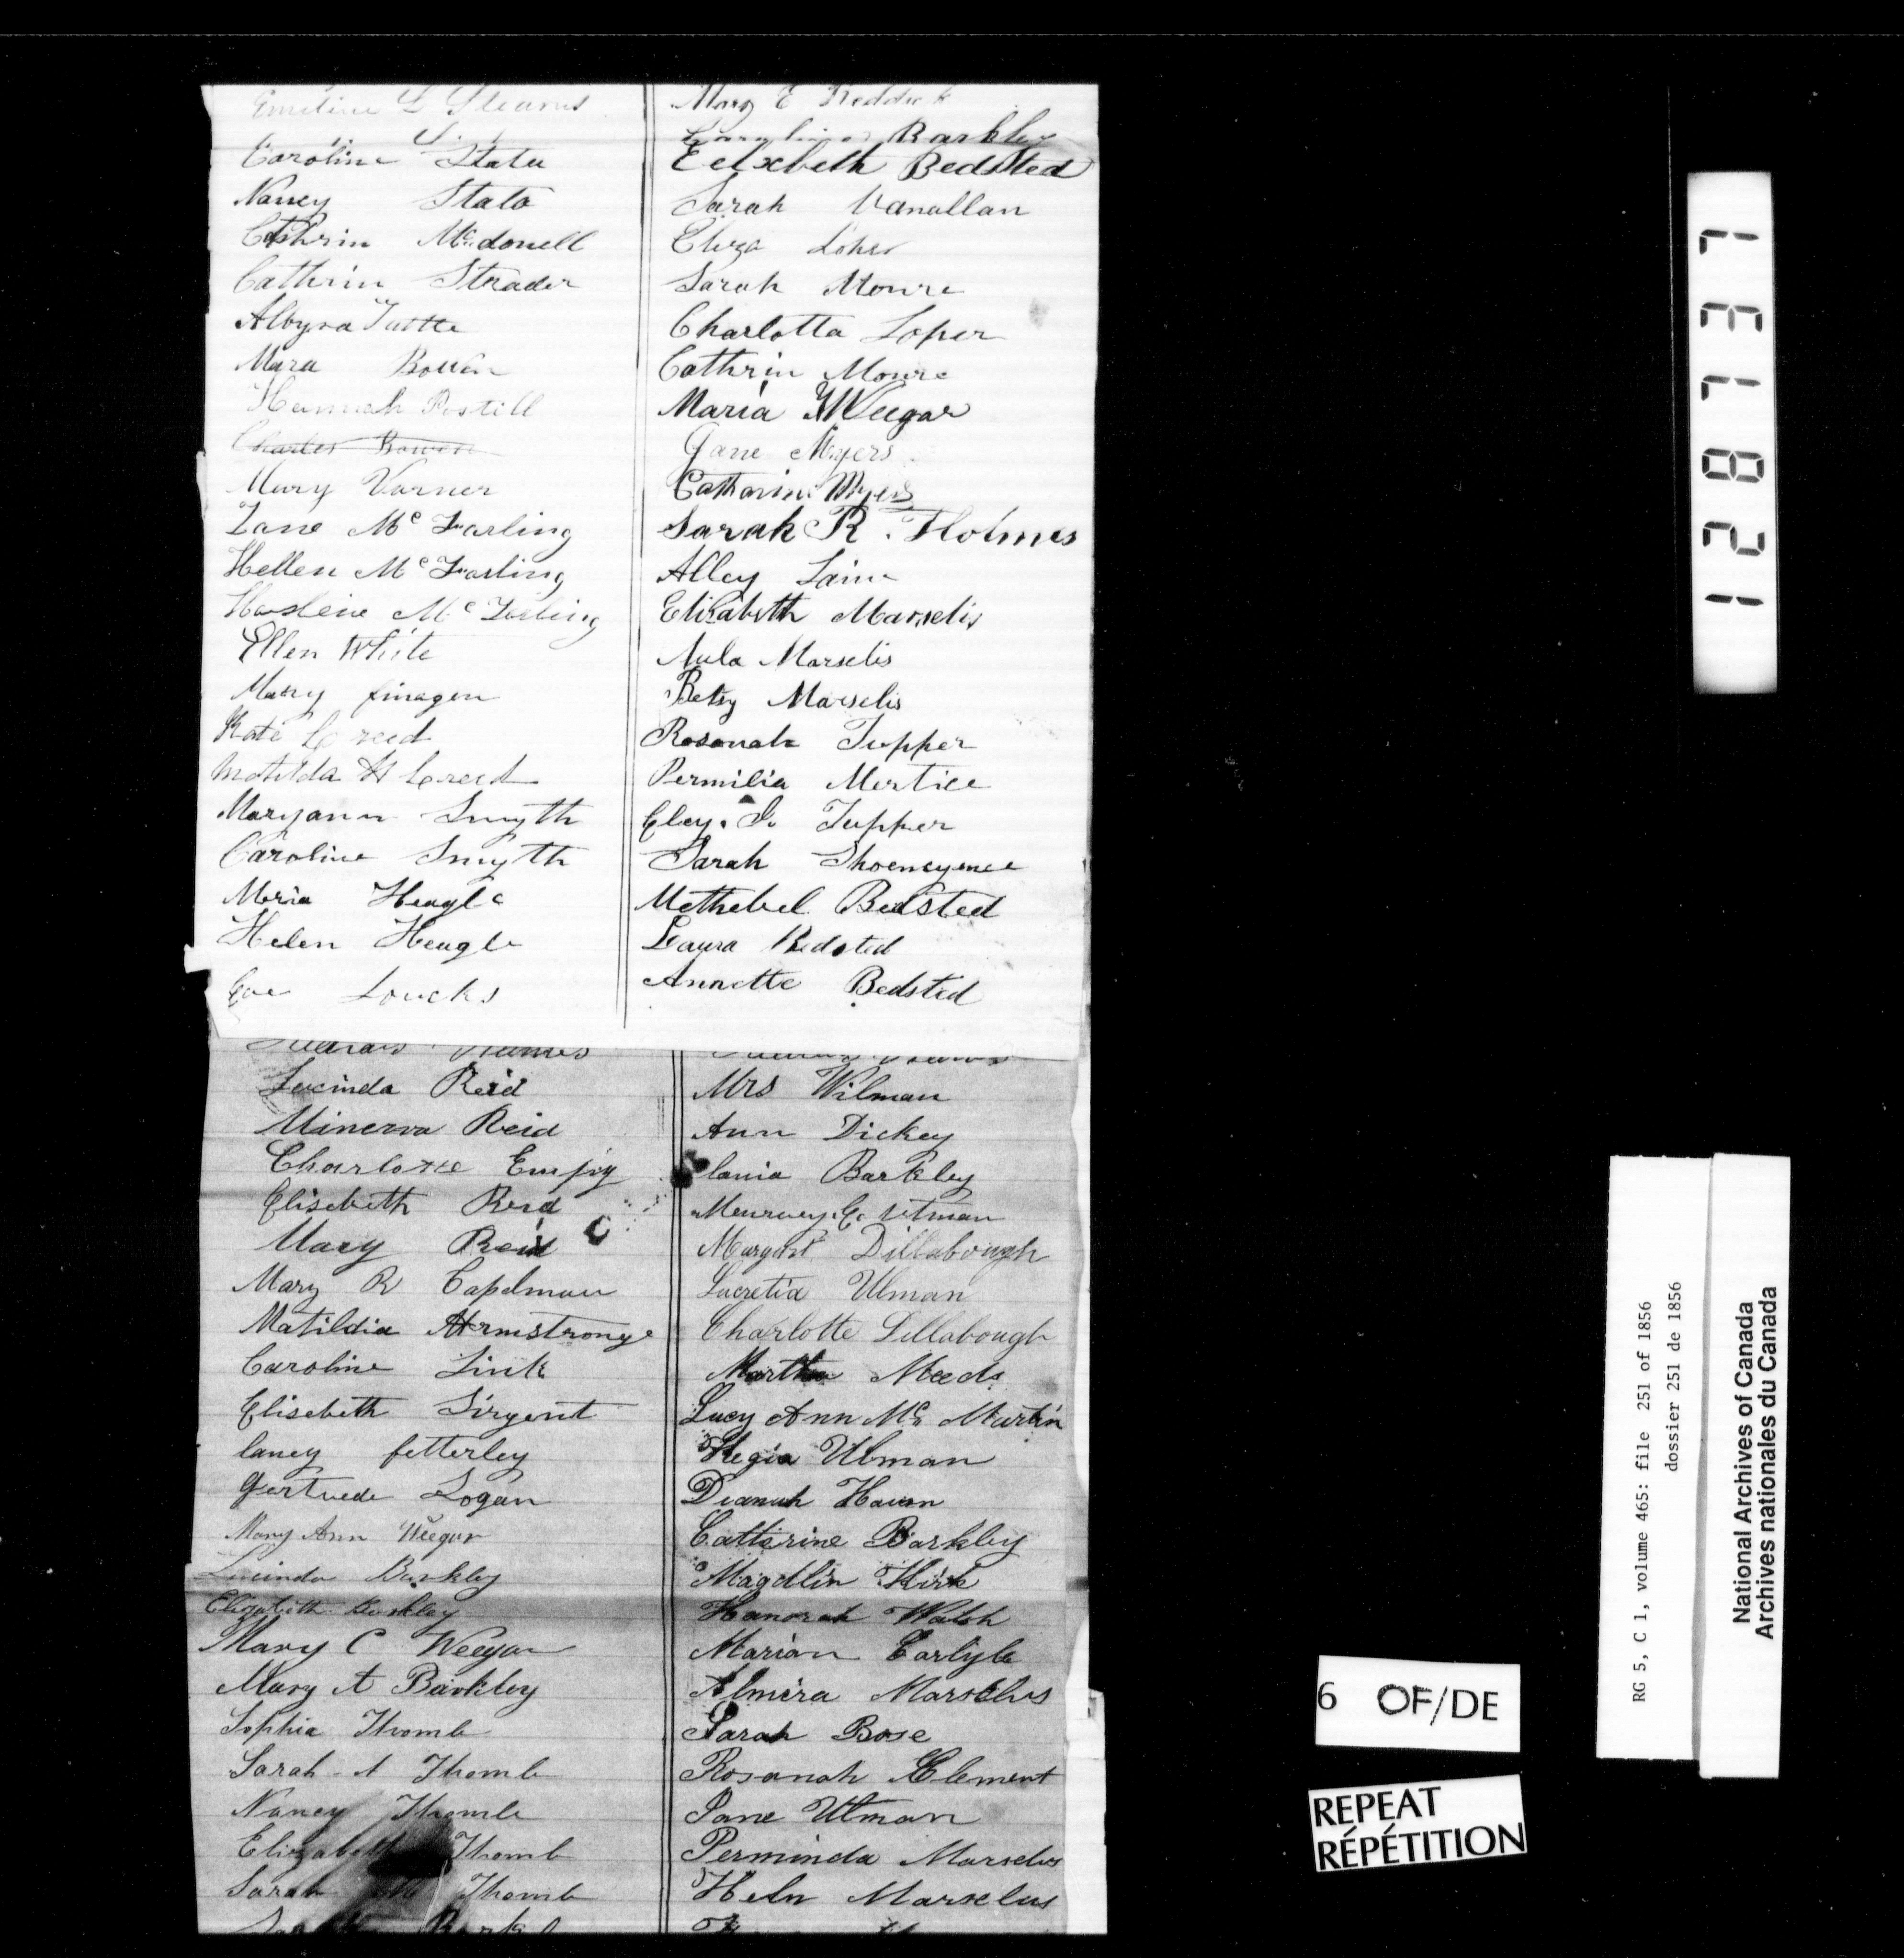 Emeline L Stearns
Caroline Stata
Nancy Stata
Cathrin McDonell
Cathrin Strader
Albyra Tuttle
Mara Bowen
Hannah Postill
Charles Bowen
Mary Varner
Jane Mc Farling
Hellen Mc Farling
Mc Farling
Ellen White
Mary finagen
Kate Creed
Matilda H Creed
Maryann Smyth
Caroline Smyth
Meria Heagle
Helen Heagle
Eve Loucks
Mary E Reddick
Barkley
Eelxcbeth Bedsted
Sarah Vanallan
Eliza
Sarah Moure
Charlotta Loper
Cathrin Moure
Maria Weegar
Jane Myers
Catharine Myers
Sarah R. Holmes
Alley Laine
Elizabeth Marselis
Nula Marselis
Betsy Marselis
Rosonah Tupper
Permilia Mertice
Tupper
Sarah
Methebel Bedsted
Laura Bedsted
Annette Bedsted
Lucinda Reid
Minerva Reid
Charlotte Empy
Elisebeth Reid
Mary Reid
Mary R Capelman
Matildia Armstronge
Caroline Link
Elisebeth Sirgent
laney fetterley
Gertrude Logan
Mary Ann Weegar
Lucinda Barkley
Elizabeth Barkley
Mary C Weegar
Mary A Barkley
Sophia Thomb
Sarah A Thomb
Nancy Thomb
Elizabeth Thomb
Sarah Thomb
Mrs Wilman
Ann Dickey
lania Barkley
Margret Dillabough
Lucretia Ulman
Charlotte Dillabough
Martha Meeds
Lucy Ann Mc Martin
Kegia Ulman
Dianah Haven
Catterine Barkley
Magdlin Kirk
Hanorah Walsh
Marian Carlyle
Almira Marselus
Sarah Bose
Rosanah Clement
Jane Ulman
Perminda Marselus
Heln Marselus
128737
RG 5, C 1, volume 465: file 251 of 1856
dossier 251 de 1856
National Archives of Canada
Archives nationales du Canada
6 OF/DE
REPEAT
RÉPÉTITION